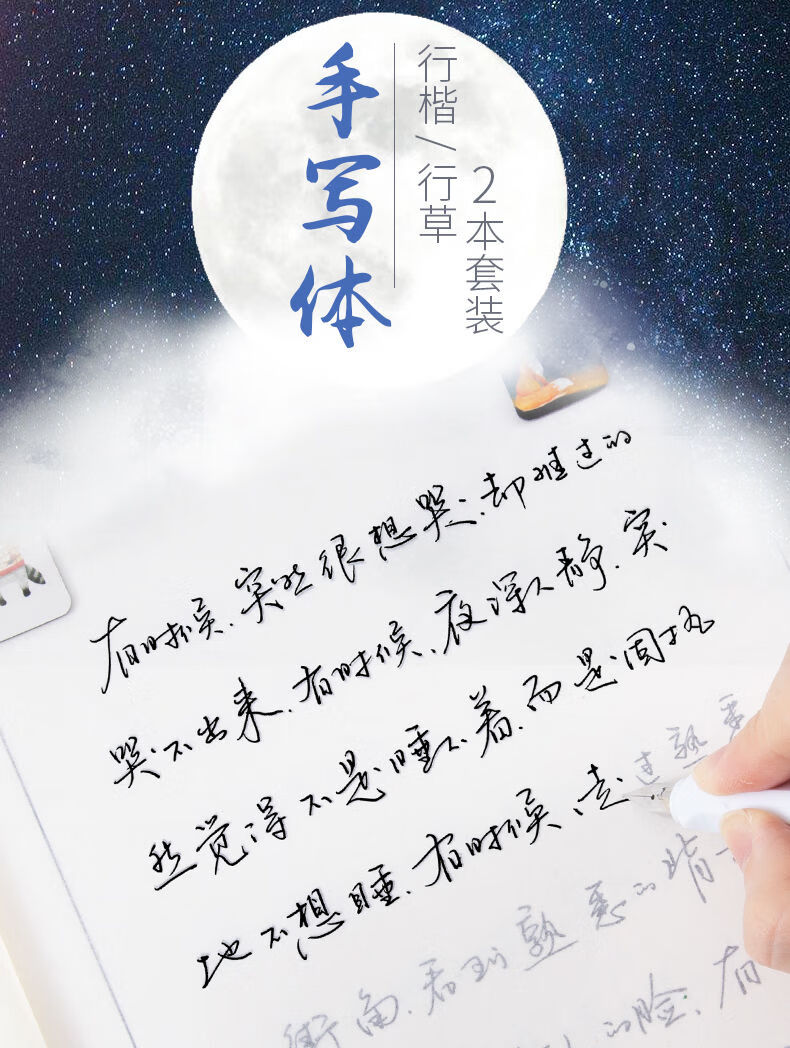 手写体
行楷/行草
2本套装
有时候,突然很想哭,却难过的
哭不出来,有时候,夜深人静,突
然觉得不是睡不着,而是固执
地不想睡,有时候,走过熟悉
街角,看到熟悉的背
的脸,有